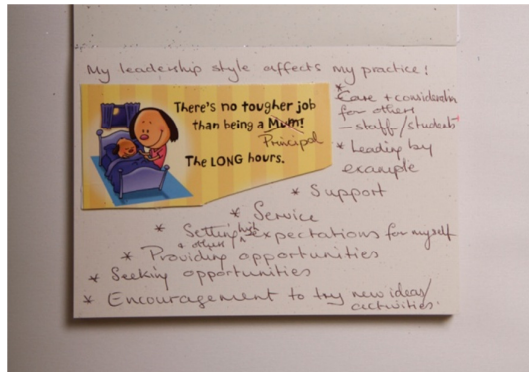 My leadership style affects my practice!
There's no tougher job
than being a Mum!
Principal
The LONG hours.
* Care + consideration
for others
- staff/students
* Leading by
example
* Support
* Service
* Setting high expectations for myself
+ others
* Providing opportunities
* Seeking opportunities
* Encouragement to try new ideas/
activities.